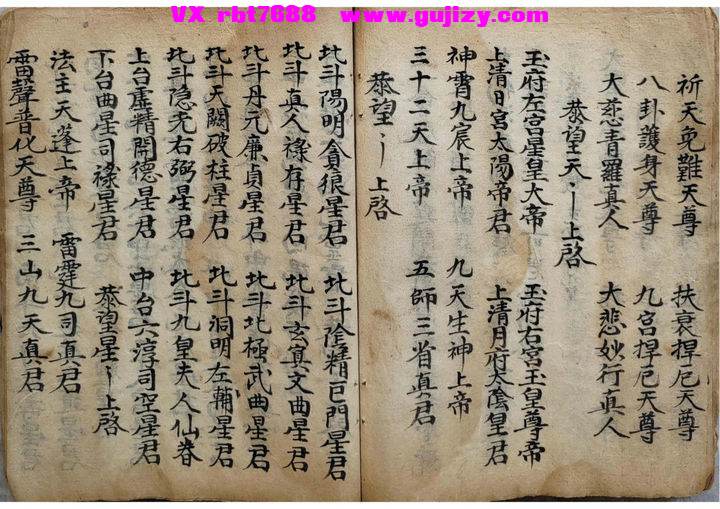 VX rbt7688 www.gujizy.com
祈天免難天尊 扶衰捍厄天尊
八卦護身天尊 九宮捍厄天尊
大慈青羅真人 大悲妙行真人
恭望天〻上啓
玉府左宮星皇大帝 玉府右宮玉皇尊帝
上清日宮太陽帝君 上清月府太陰皇君
神霄九宸上帝 九天生神上帝
三十二天上帝 五師三省真君
恭望〻上啓
北斗陽明貪狼星君 北斗陰精巨門星君
北斗真人祿存星君 北斗玄真文曲星君
北斗丹元廉貞星君 北斗北極武曲星君
北斗天關破柱星君 北斗洞明左輔星君
北斗隐光右弼星君 北斗九皇夫人仙眷
上台虛精開德星君 中台六淳司空星君
下台曲星司祿星君 恭望星〻上啓
法主天蓬上帝 雷霆九司真君
雷聲普化天尊 三山九天真君